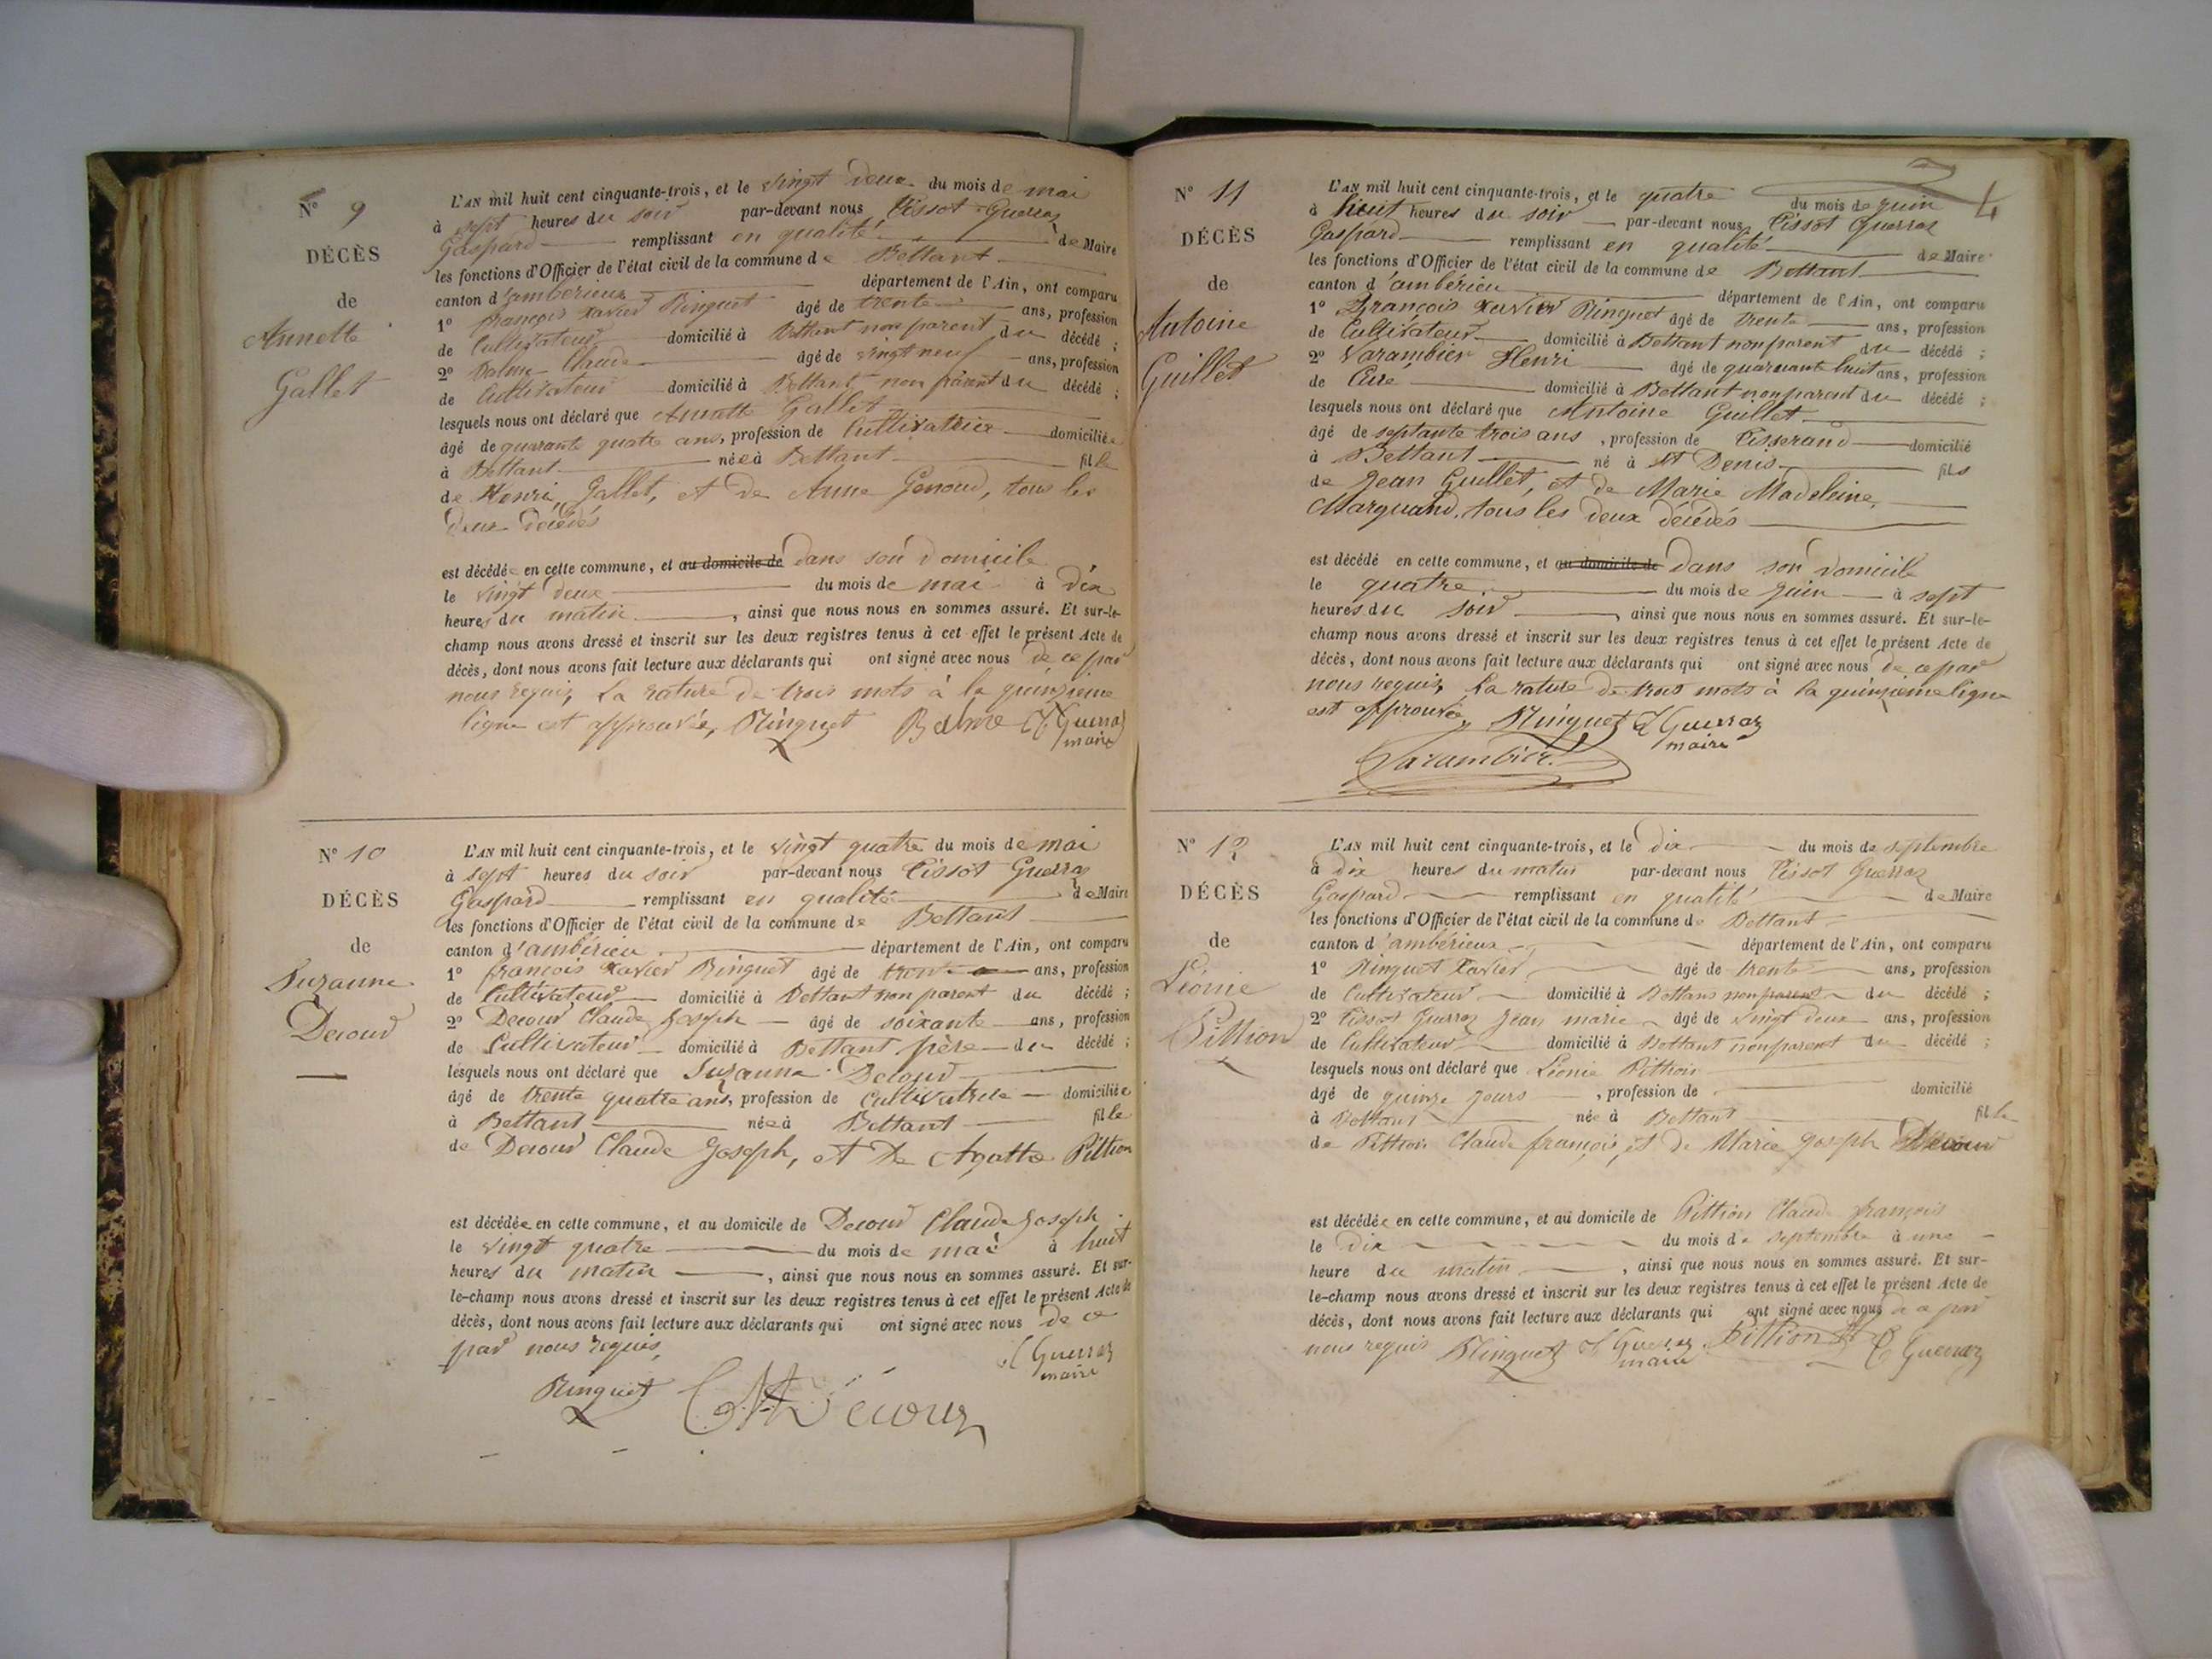 N° 9
DÉCÈS
de
Annette
Gallet
L'AN mil huit cent cinquante-trois, et le vingt deux du mois de mai
à sept heures du soir par-devant nous Tissot Guerraz
Gaspard remplissant en qualité de Maire
les fonctions d'Officier de l'état civil de la commune de Bettant
canton d'ambérieux département de l'Ain, ont comparu
1° françois Xavier Ringuet âgé de trente ans, profession
de Cultivateur domicilié à Bettant non parent du décédé ;
2° Balme Claude âgé de vingt neuf ans, profession
de Cultivateur domicilié à Bettant non parent du décédé ;
lesquels nous ont déclaré que Annette Gallet
âgé de quarante quatre ans, profession de Cultivatrice domiciliée
à Bettant née à Bettant fille
de Henri Gallet, et de Anne Genoud, tous les
deux décédés
est décédée en cette commune, et au domicile de dans son domicile
le vingt deux du mois de mai à dix
heures du matin, ainsi que nous nous en sommes assuré. Et sur-le-
champ nous avons dressé et inscrit sur les deux registres tenus à cet effet le présent Acte de
décès, dont nous avons fait lecture aux déclarants qui ont signé avec nous de ce par
nous requis, La rature de trois mots à la quinzieme
ligne est approuvée, Ringuet Balme T Guerraz
maire
N° 10
DÉCÈS
de
Suzanne
Decour
L'AN mil huit cent cinquante-trois, et le vingt quatre du mois de mai
à sept heures du soir par-devant nous Tissot Guerraz
Gaspard remplissant en qualité de Maire
les fonctions d'Officier de l'état civil de la commune de Bettant
canton d'ambérieu département de l'Ain, ont comparu
1° françois Xavier Ringuet âgé de trente ans, profession
de Cultivateur domicilié à Bettant non parent du décédé ;
2° Decour Claude Joseph âgé de soixante ans, profession
de Cultivateur domicilié à Bettant père du décédé ;
lesquels nous ont déclaré que Suzanne Decour
âgé de trente quatre ans, profession de Cultivatrice domiciliée
à Bettant née à Bettant fille
de Decour Claude Joseph, et de Agatte Pittion
est décédée en cette commune, et au domicile de Decour Claude Joseph
le vingt quatre du mois de mai à huit
heures du matin, ainsi que nous nous en sommes assuré. Et sur-
le-champ nous avons dressé et inscrit sur les deux registres tenus à cet effet le présent Acte de
décès, dont nous avons fait lecture aux déclarants qui ont signé avec nous de ce
par nous requis,
T Guerraz
maire
Ringuet Décour
4
N° 11
DÉCÈS
de
Antoine
Guillet
L'AN mil huit cent cinquante-trois, et le quatre du mois de juin
à huit heures du soir par-devant nous Tissot Guerraz
Gaspard remplissant en qualité de Maire
les fonctions d'Officier de l'état civil de la commune de Bettant
canton d'ambérieu département de l'Ain, ont comparu
1° François Xavier Ringuet âgé de trente ans, profession
de Cultivateur domicilié à Bettant non parent du décédé ;
2° Varambier Henri âgé de quarante huit ans, profession
de Curé domicilié à Bettant non parent du décédé ;
lesquels nous ont déclaré que Antoine Guillet
âgé de septante trois ans, profession de Tisserand domicilié
à Bettant né à St Denis fils
de Jean Guillet, et de Marie Madeleine
Marquand, tous les deux décédés
est décédé en cette commune, et au domicile de dans son domicile
le quatre du mois de juin à sept
heures du soir, ainsi que nous nous en sommes assuré. Et sur-le-
champ nous avons dressé et inscrit sur les deux registres tenus à cet effet le présent Acte de
décès, dont nous avons fait lecture aux déclarants qui ont signé avec nous de ce par
nous requis, La rature de trois mots à la quinzieme ligne
est approuvée, Ringuet T Guerraz
maire
Varambier
N° 12
DÉCÈS
de
Léonie
Pittion
L'AN mil huit cent cinquante-trois, et le dix du mois de septembre
à dix heures du matin par-devant nous Tissot Guerraz
Gaspard remplissant en qualité de Maire
les fonctions d'Officier de l'état civil de la commune de Bettant
canton d'ambérieux département de l'Ain, ont comparu
1° Ringuet Xavier âgé de trente ans, profession
de Cultivateur domicilié à Bettans non parent du décédé ;
2° Tissot Guerraz Jean marie âgé de vingt deux ans, profession
de Cultivateur domicilié à Bettant non parent du décédé ;
lesquels nous ont déclaré que Léonie Pittion
âgé de quinze jours, profession de domicilié
à Bettant née à Bettant fille
de Pittion Claude françois, et de Marie Joseph Decour
est décédée en cette commune, et au domicile de Pittion Claude françois
le dix du mois de septembre à une
heure du matin, ainsi que nous nous en sommes assuré. Et sur-
le-champ nous avons dressé et inscrit sur les deux registres tenus à cet effet le présent Acte de
décès, dont nous avons fait lecture aux déclarants qui ont signé avec nous de ce par
nous requis Ringuet T Guerraz Pittion T Guerraz
maire